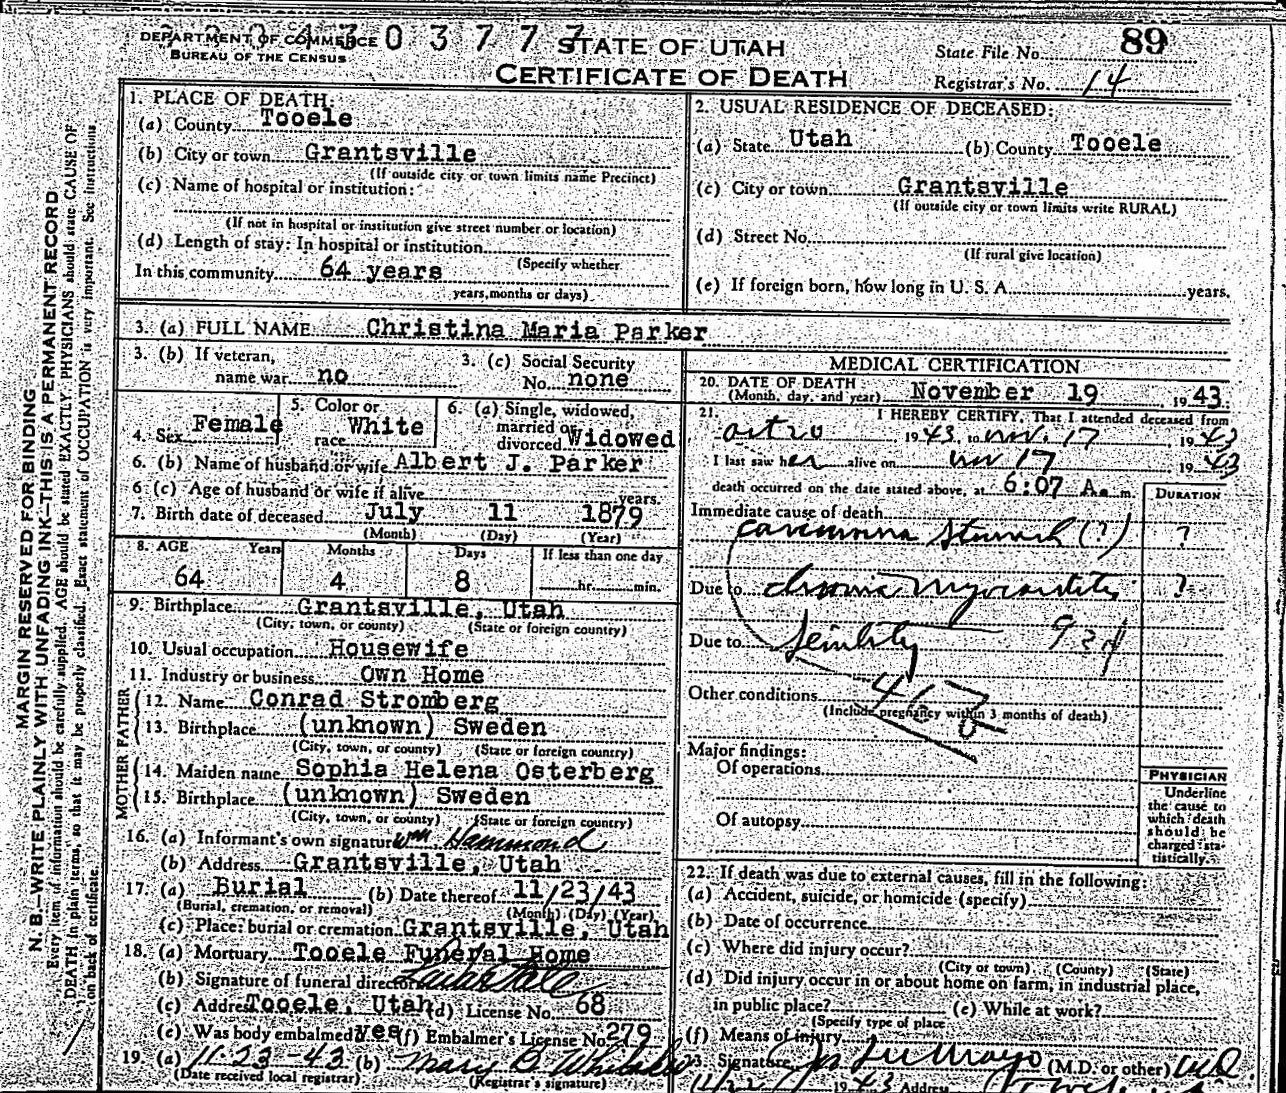 DEPARTMENT OF COMMERCE
BUREAU OF THE CENSUS
STATE OF UTAH
CERTIFICATE OF DEATH
State File No. 89
Registrar's No. 14
MARGIN RESERVED FOR BINDING
N. B.—WRITE PLAINLY WITH UNFADING INK—THIS IS A PERMANENT RECORD
Every item of information should be carefully supplied. AGE should be stated EXACTLY. PHYSICIANS should state CAUSE OF
DEATH in plain terms, so that it may be properly classified. Exact statement of OCCUPATION is very important. See instructions
on back of certificate.
1. PLACE OF DEATH:
(a) County Tooele
(b) City or town Grantsville
(If outside city or town limits name Precinct)
(c) Name of hospital or institution:
(If not in hospital or institution give street number or location)
(d) Length of stay: In hospital or institution
(Specify whether
In this community 64 years
years, months or days)
2. USUAL RESIDENCE OF DECEASED:
(a) State Utah (b) County Tooele
(c) City or town Grantsville
(If outside city or town limits write RURAL)
(d) Street No.
(If rural give location)
(e) If foreign born, how long in U. S. A. years.
3. (a) FULL NAME Christina Maria Parker
3. (b) If veteran,
name war no
3. (c) Social Security
No. none
4. Sex Female
5. Color or
race White
6. (a) Single, widowed,
married or
divorced Widowed
6. (b) Name of husband or wife Albert J. Parker
6 (c) Age of husband or wife if alive years.
7. Birth date of deceased July 11 1879
(Month) (Day) (Year)
8. AGE Years Months Days If less than one day
64 4 8 hr. min.
9. Birthplace Grantsville, Utah
(City, town, or county) (State or foreign country)
10. Usual occupation Housewife
11. Industry or business Own Home
FATHER
12. Name Conrad Stromberg
13. Birthplace (unknown) Sweden
(City, town, or county) (State or foreign country)
MOTHER
14. Maiden name Sophia Helena Osterberg
15. Birthplace (unknown) Sweden
(City, town, or county) (State or foreign country)
16. (a) Informant's own signature Wm. Hammond
(b) Address Grantsville, Utah
17. (a) Burial (b) Date thereof 11/23/43
(Burial, cremation, or removal) (Month) (Day) (Year)
(c) Place: burial or cremation Grantsville, Utah
18. (a) Mortuary Tooele Funeral Home
(b) Signature of funeral director
(c) Address Tooele, Utah (d) License No. 68
(e) Was body embalmed yes (f) Embalmer's License No. 279
19. (a) 11-23-43 (b) Mary B. 
(Date received local registrar) (Registrar's signature)
MEDICAL CERTIFICATION
20. DATE OF DEATH
(Month, day, and year) November 19 1943.
21. I HEREBY CERTIFY, That I attended deceased from
Oct 20 1943, to Nov. 17 1943
I last saw her alive on Nov 17 1943
death occurred on the date stated above, at 6:07 A. m.
DURATION
Immediate cause of death
Carcinoma Stomach (?) ?
Due to Chronic Myocarditis ?
Due to Senility
Other conditions
(Include pregnancy within 3 months of death)
Major findings:
Of operations
Of autopsy
PHYSICIAN
Underline
the cause to
which death
should be
charged sta-
tistically.
22. If death was due to external causes, fill in the following:
(a) Accident, suicide, or homicide (specify)
(b) Date of occurrence
(c) Where did injury occur?
(City or town) (County) (State)
(d) Did injury occur in or about home on farm, in industrial place,
in public place? (e) While at work?
(Specify type of place
(f) Means of injury
23 Signature (M.D. or other) MD
11/22 1943 Address